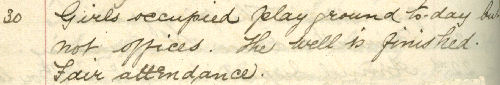 30 Girls occupied playground to-day but
not offices. The well is finished.
Fair attendance.